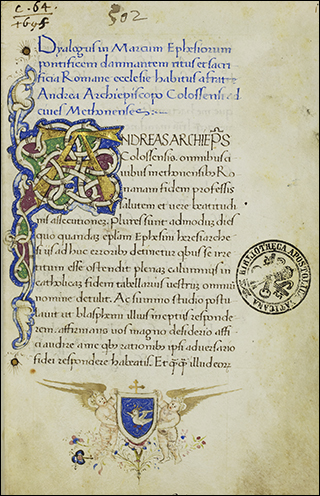 c. 64.
1695
502
Dyalogus in Marcum Ephesiorum
pontificem damnantem ritus et sacri
ficia Romane ecclesie habitus a fratre
Andrea Archiepiscopo Colossensi ad
cives Methonenses
ANDREAS ARCHIEP̃S
Colossensis. omnibus ci
vibus methonensib; Ro
manam fidem professis
salutem et vere beatitudi
nis affectionem. Plures sunt admodum dies
quo quandam eplam Ephesini heresiarche
si us ad huc erroribus detinetur
rutum esse ostendit plenam calumnijs in
catholicam fidem tabellarius vestrum omnium
nomine detulit. Ac summo studio postu
lavit ut blasphemi illius ineptijs responde
rem. affirmans vos magno desiderio affi
ci audire a me ipsi adversario
fidei respondere habeatis. Et illud
BIBLIOTHECA APOSTOLICA VATICANA